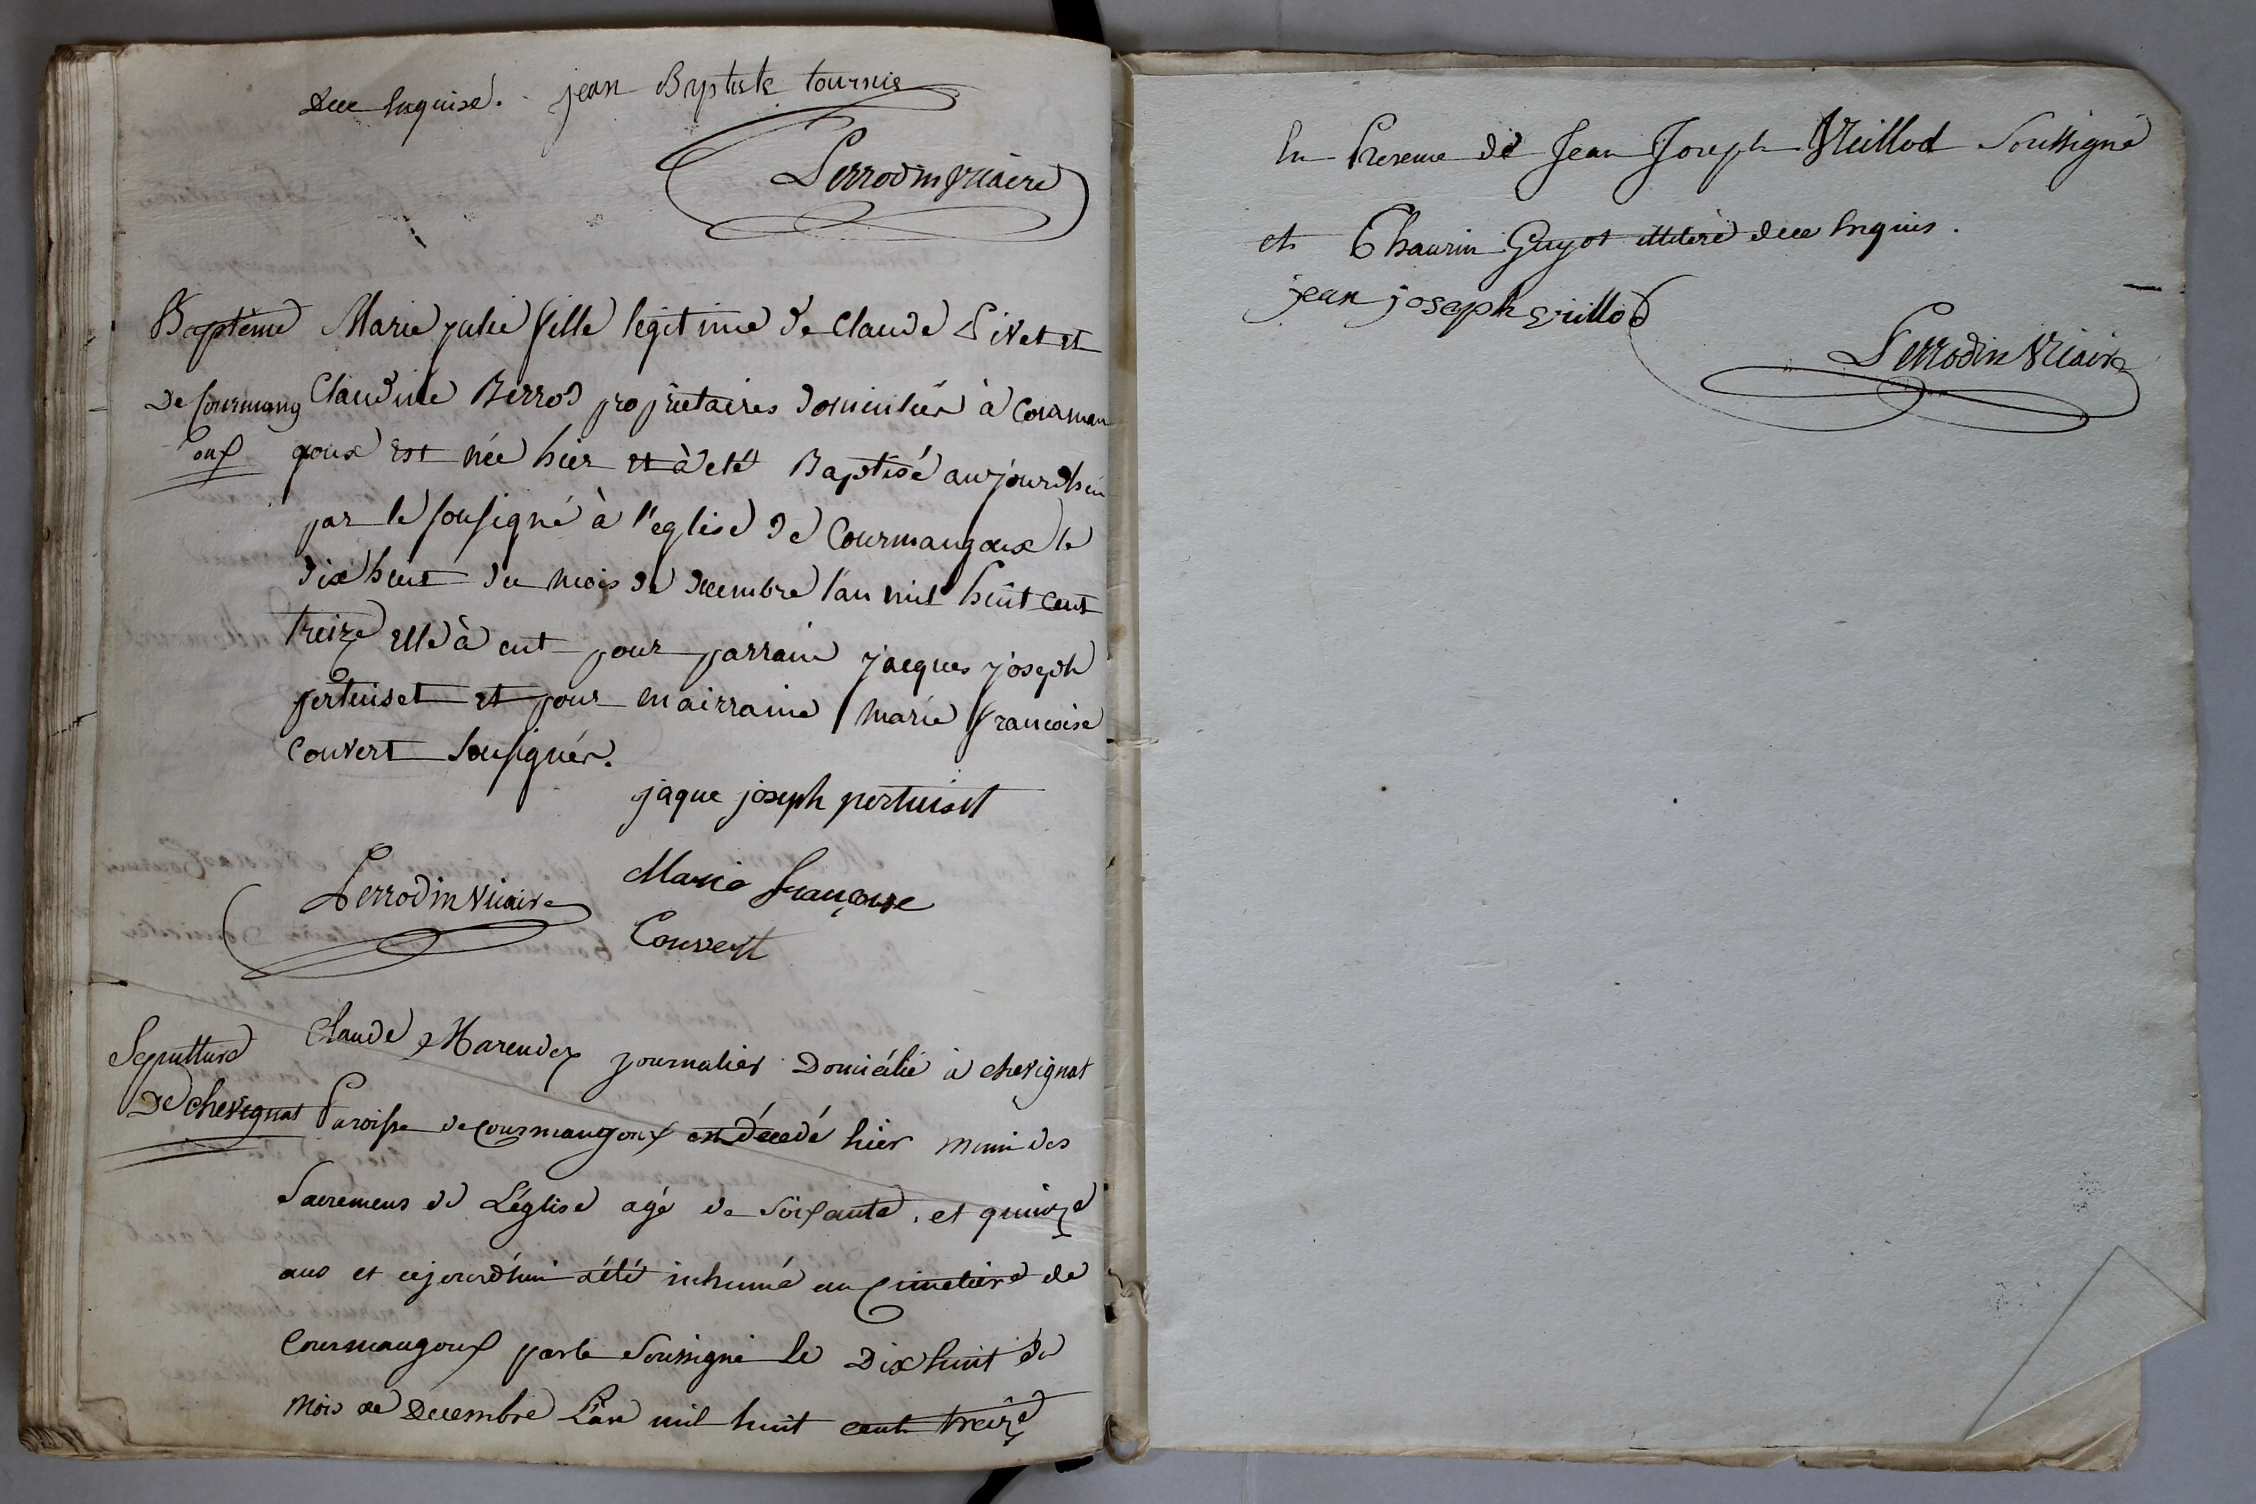 de ce Enquise. jean Baptiste tournie
Perrodin Vicaire
Baptême Marie julie fille légitime de Claude Pivet et
de Courmang Claudine Berrod propriétaires domiciliés à Courman
oux goux est née hier et à eté Baptisé aujourdhui
par le sousigné à l'eglise de Courmangoux le
dix huit du mois de decembre l'an mil huit cent
treize elle à eut pour parrain jacques joseph
pertuiset et pour mairraine marie francoise
Couvert sousignés.
jaque joseph pertuiset
Marie françoise
Perrodin Vicaire
Couvert
Sepulture Claude Marendet journalier Domicilié à chevignat
De chevignat Paroisse de Courmangoux est décedé hier muni des
Sacremens de L'église agé de Soixante et quinze
ans et cejourd'hui a été inhumé au cimetière de
Courmangoux par le Soussigné le Dix huit du
mois de Decembre L'an mil huit cent treize
En Presence de Jean Joseph Vuillod Soussigné
et Thaurin Guyot illiteré de ce Enquis.
jean joseph vuillod
Perrodin Vicaire